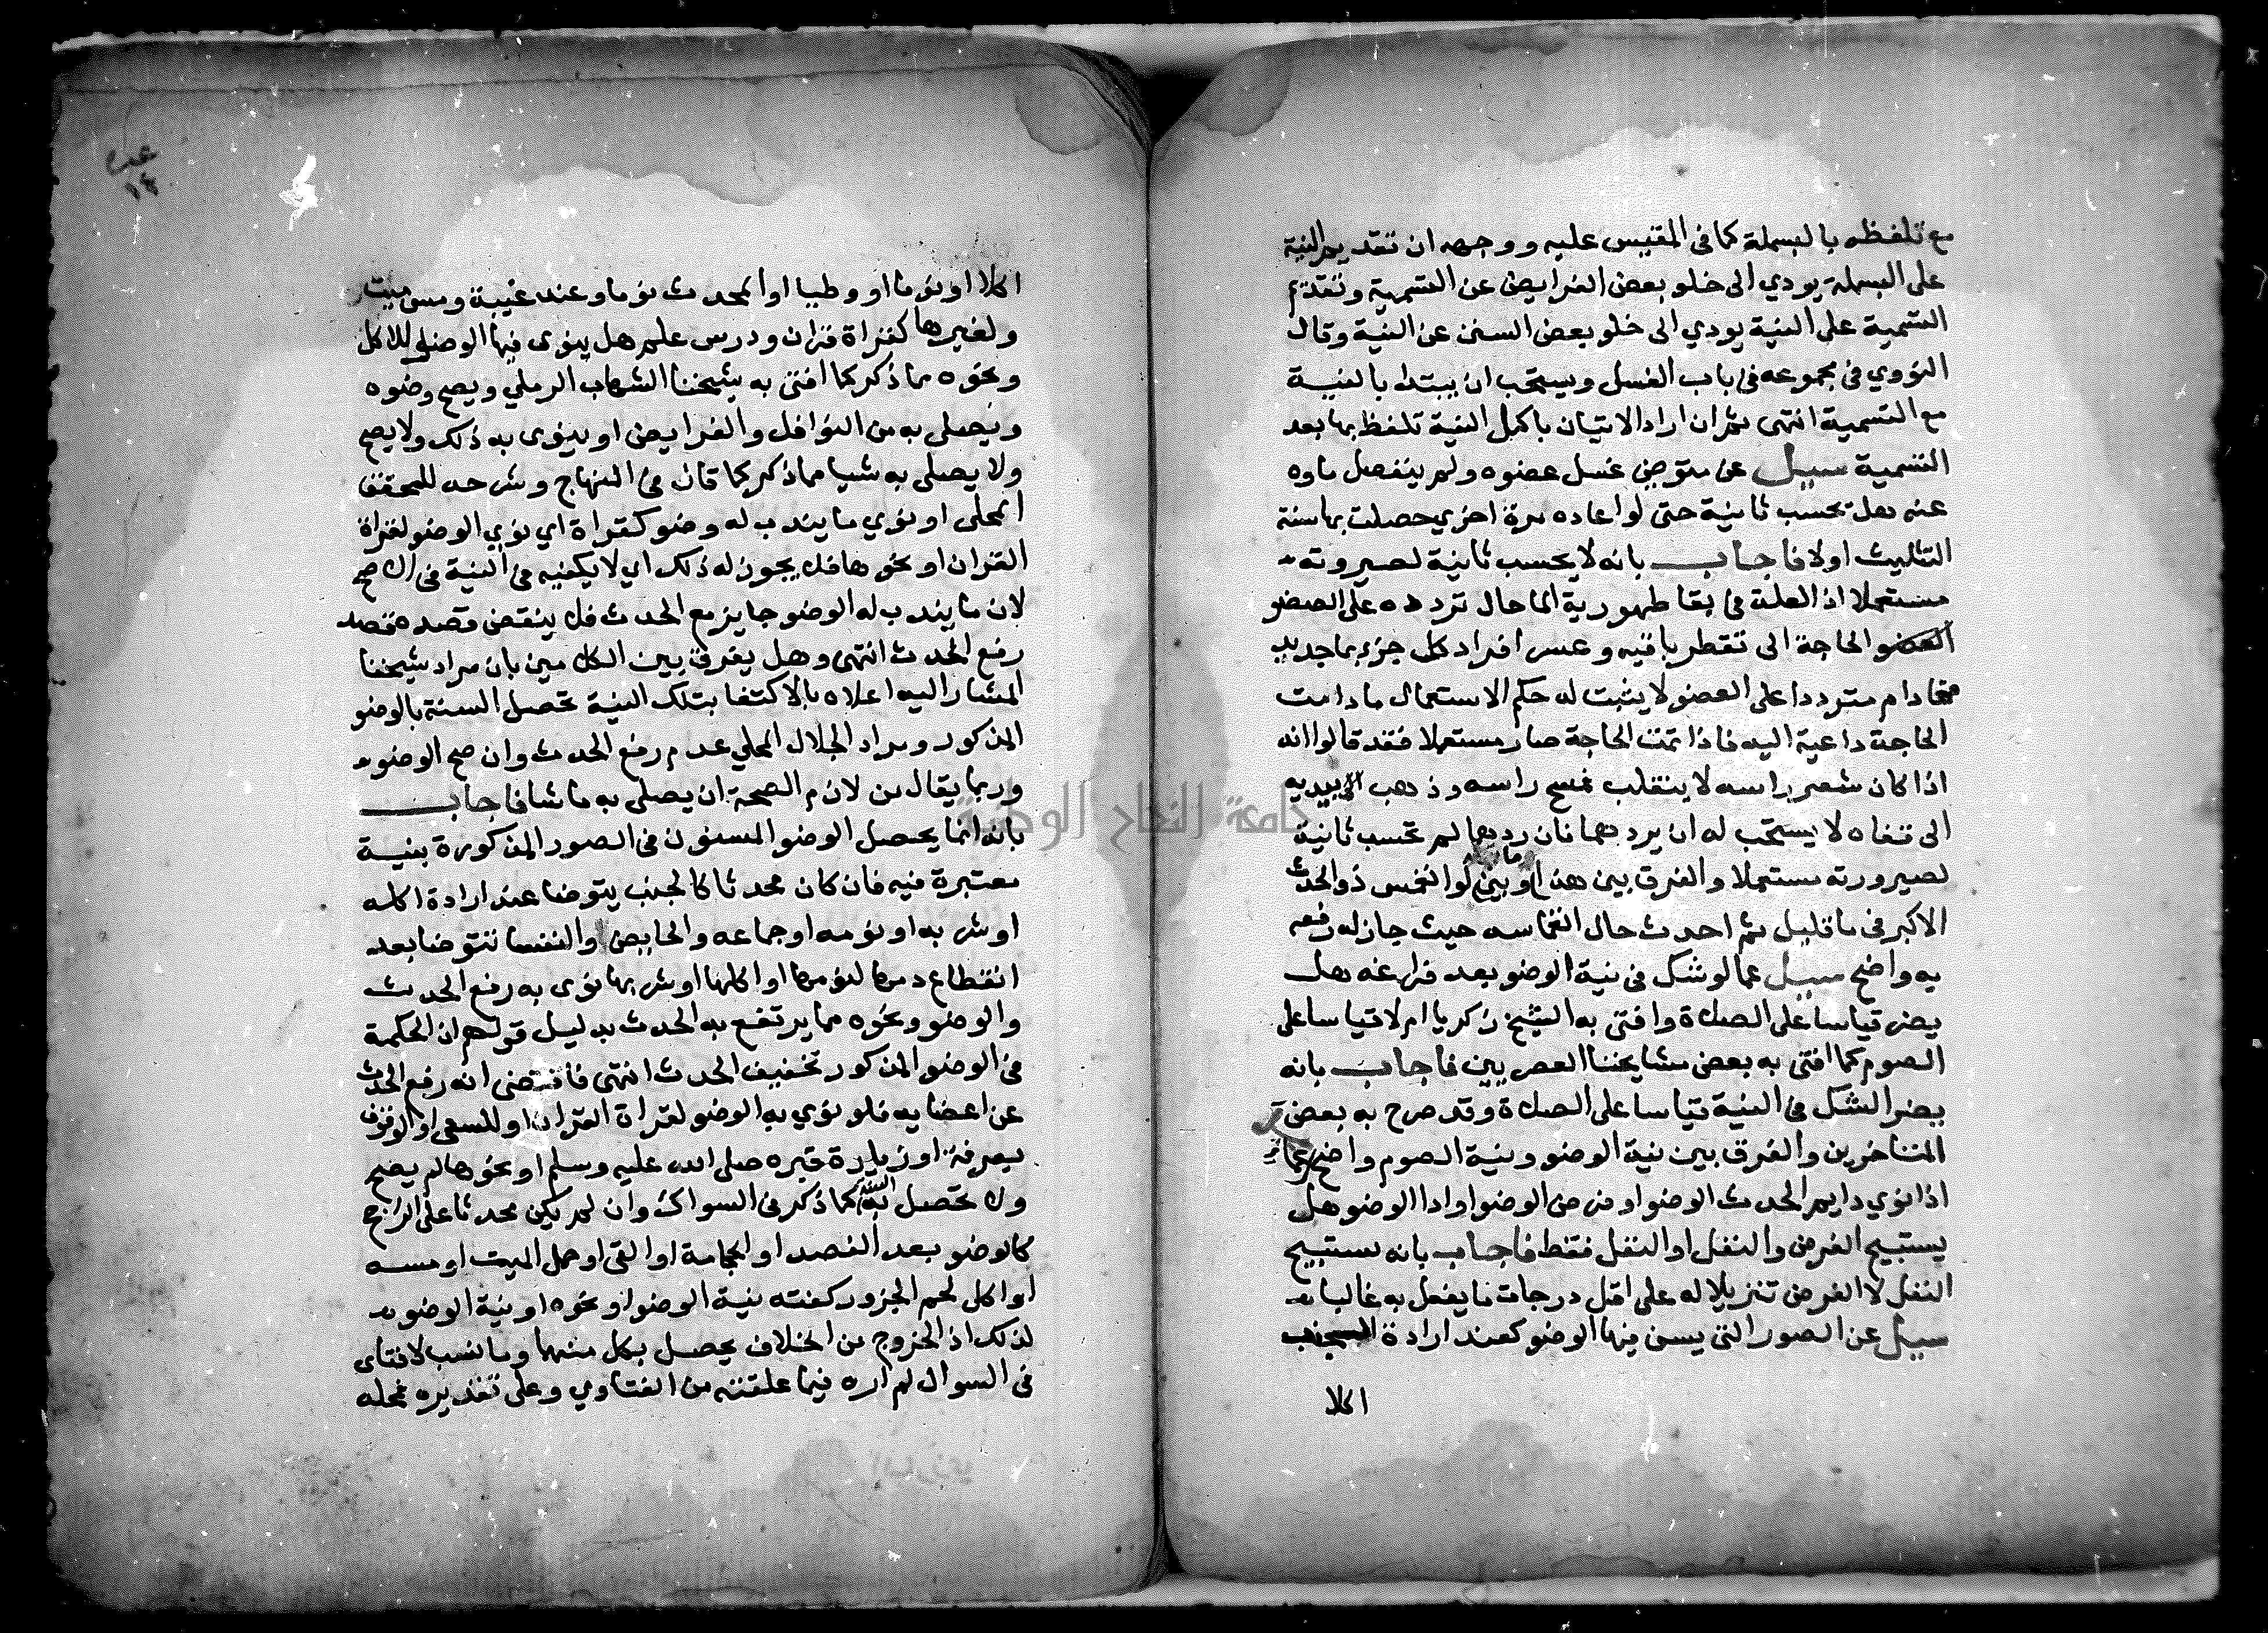 مع تلفظه بالبسملة كما في المقيس عليه ووجهه ان تقديم النية
على البسملة يودي الى خلو بعض الفرايض عن التسمية وتقديم
التسمية على النية يودي الى خلو بعض السنن عن النية وقال
النووي في مجموعه في باب الغسل ويستحب ان يبتدا بالنيـة
مع التسمية انتهى ثم ان اراد الاتيان باكمل النية تلفظ بها بعد
التسمية سيل عن متوضى غسل عضوه ولم ينفصل ماوه
عنه هل تحسب ثانية حتى لو اعاده مرة اخري حصلت بها سنة
التثليث اولا فاجاب بانه لا يحسب ثانية لصيرورته
مستعملا اذ العلة في بقا طهورية الما حال تردده على العضو
الحاجة الى تقطر باقيه وعسر افراد كل جزء بما جديد
فما دام مترددا على العضو لا يثبت له حكم الاستعمال ما دامت
الحاجة داعية اليه فاذا تمت الحاجة صار مستعملا فقد قالوا انه
اذا كان شعر راسه لا ينقلب لمسح راسه وذهب اليديه
الى قفاه لا يستحب له ان يردهما فان ردهما لم تحسب ثانية
لصيرورته مستعملا والفرق بين هذا وبين ما لوا نغمس ذو الحدث
الاكبر في ما قليل ثم احدث حال انغماسه حيث جاز له رفعه
به واضح سيل عما لو شك في نية الوضو بعد فراغه هل
يضر قياسا على الصلاة وافتى به الشيخ زكريا ام لا قياسا على
الصوم كما افتى به بعض مشايخنا العصريين فاجاب بانه
يضر الشك في النية قياسا على الصلاة وقد صرح به بعض
المتاخرين والفرق بين نية الوضو ونية الصوم واضح
اذا نوي دايم الحدث الوضو او فرض الوضوا وادا الوضو هل
يستبيح الفرض والنفل او النفل فقط فاجاب بانه يستبيح
النفل لا الفرض تنزيلا له على اقل درجات ما يفعل به غالبا
سيل عن الصور التي يسن فيها الوضو كعند ارادة الجنب
اكلا
اكلا او نوما او وطيا او المحدث نوما وعند غيبة ومس ميت
ولغيرها كقراة قران ودرس علم هل ينوى فيها الوضو للاكل
ونحوه مما ذكر كما افتى به شيخنا الشهاب الرملي ويصح وضوه
ويصلى به من النوافل والفرايض او ينوى به ذلك ولا يصح
ولا يصلى به شيا مما ذكر كما قال في المنهاج وشرحه للمحقق
المحلى او نوي ما يندب له وضو كقراة اي نوي الوضو لقراة
القران او نحوها فلا يجوز له ذلك اي لا يكفيه في النية في الاصح
لان ما يندب له الوضو جايز مع الحدث فلا ينقض قصده قصد
رفع الحدث انتهى وهل يفرق بين الكلامين بان مراد شيخنا
المشار اليه اعلاه بالاكتفا بتلك النية تحصل السنة بالوضو
المذكور ومراد الجلال المحلي عدم رفع الحدث وان صح الوضو
وربما يقال من لازم الصحة ان يصلى به ما شا فاجاب
بانه انما يحصل الوضو المسنون في الصور المذكورة بنيـة
معتبرة فيه فان كان محدثا كالجنب يتوضا عند ارادة اكله
او شربه او نومه او جماعه والحايض والنفسا تتوضا بعد
انقطاع دمها لنومها او اكلها او شربها نوى به رفع الحدث
والوضو ونحوه مما يرتفع به الحدث بدليل قولهم ان الحكمة
في الوضو المذكور تخفيف الحدث انتهى فاقتضى انه رفع الحدث
عن اعضايه فلو نوي به الوضو لقراة القران او للسعى او الوقوف
بعرفة او زيارة قبره صلى الله عليه وسلم او نحوها لم يصح
ولا تحصل به السنة كما ذكر في السواك وان لم يكن محدثا على الراجح
كالوضو بعد الفصد او الحجامة او القى او حمل الميت او مسـه
او اكل لحم الجزور كفته نية الوضوا ونحوه او نية الوضو
لذلك اذ الخروج من الخلاف يحصل بكل منهما وما نسب لافتاى
في السوال لم اره فيما علقته من الفتاوي وعلى تقديره فمحله
جامعة النجاح الوطنية